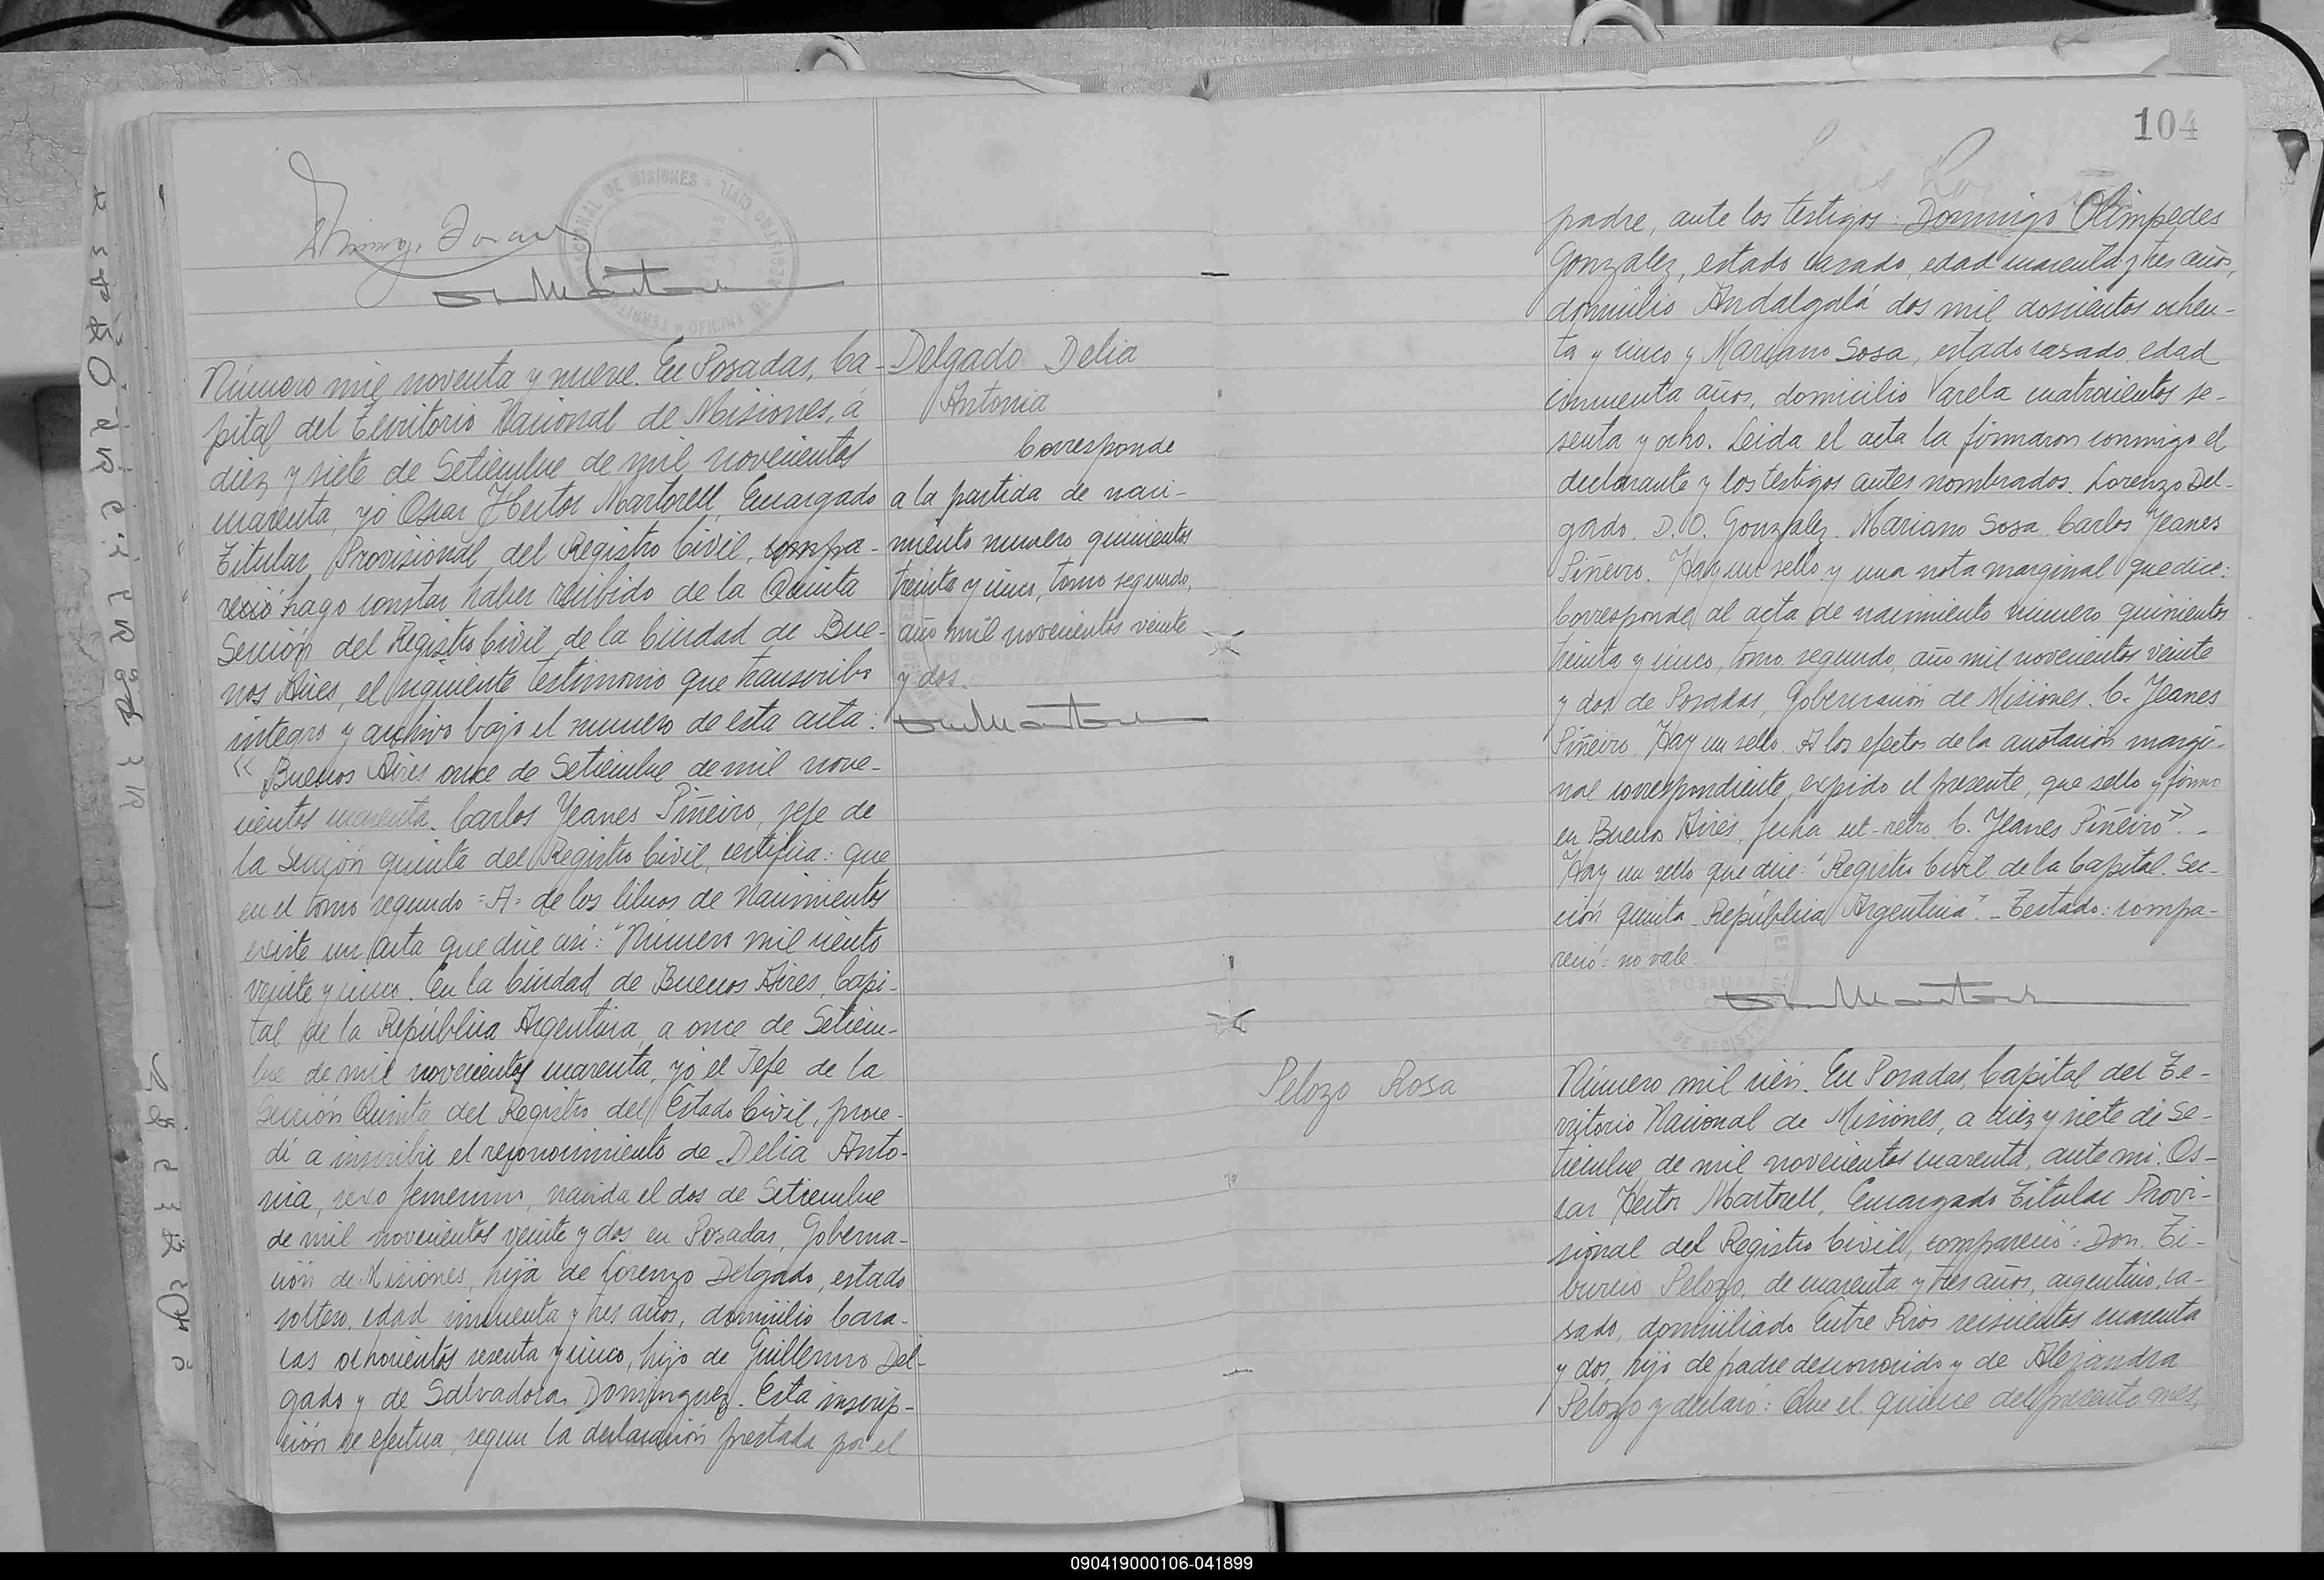 Número mil noventa y nueve. En Posadas, Ca-
pital del Territorio Nacional de Misiones, a
diez y siete de Setiembre de mil novecientos
cuarenta, yo Oscar Hector Martorell, Encargado
Titular Provisional del Registro Civil, compa-
reció hago constar haber recibido de la Quinta
Sección del Registro Civil de la Ciudad de Bue-
nos Aires, el siguiente testimonio que transcribo
integro y archivo bajo el numero de esta acta:
"Buenos Aires once de Setiembre de mil nove-
cientos cuarenta. Carlos Yeanes Piñeiro, jefe de
la Sección quinta del Registro Civil, certifica: que
en el tomo segundo =A= de los libros de Nacimientos
existe un acta que dice asi: "Número mil ciento
veinte y cinco. En la Ciudad de Buenos Aires, Capi-
tal de la República Argentina, a once de Setiem-
bre de mil novecientos cuarenta, yo el Jefe de la
Sección Quinta del Registro del Estado Civil, proce-
dí a inscribir el reconocimiento de Delia Anto-
nia, sexo femenino, nacida el dos de Setiembre
de mil novecientos veinte y dos en Posadas, Goberna-
ción de Misiones, hija de Lorenzo Delgado, estado
soltero, edad cincuenta y tres años, domicilio Cara-
cas ochocientos sesenta y cinco, hijo de Guillermo Del-
gado y de Salvadora Dominguez. Esta inscrip-
ción se efectua, segun la declaración prestada por el
Delgado Delia
Antonia
Corresponde
a la partida de naci-
miento numero quinientos
treinta y cinco, tomo segundo,
año mil novecientos veinte
y dos.
104
padre, ante los testigos: Domingo Olimpedes
Gonzalez, estado casado, edad cuarenta y tres años,
domicilio Andalgalá dos mil doscientos ochen-
ta y cinco y Mariano Sosa, estado casado, edad
cincuenta años, domicilio Varela cuatrocientos se-
senta y ocho. Leida el acta la firmaron conmigo el
declarante y los testigos antes nombrados. Lorenzo Del-
gado. D. O. Gonzalez. Mariano Sosa. Carlos Yeanes
Piñeiro. Hay un sello y una nota marginal que dice:
Corresponde al acta de nacimiento número quinientos
treinta y cinco, tomo segundo, año mil novecientos veinte
y dos de Posadas, Gobernación de Misiones. C. Yeanes
Piñeiro. Hay un sello. A los efectos de la anotación margi-
nal correspondiente, expido el presente, que sello y firmo
en Buenos Aires, fecha ut-retro. C. Yeanes Piñeiro". -
Hay un sello que dice: "Registro Civil de la Capital. Sec-
ción quinta República Argentina". - Testado: compa-
reció: no vale.
Pelozo Rosa
Número mil cien. En Posadas, Capital del Te-
rritorio Nacional de Misiones, a diez y siete de Se-
tiembre de mil novecientos cuarenta, ante mi. Os-
car Hector Martorell, Encargado Titular Provi-
sional del Registro Civil, compareció: Don. Ti-
burcio Pelozo, de cuarenta y tres años, argentino, ca-
sado, domiciliado Entre Rios seiscientos cuarenta
y dos, hijo de padre desconocido y de Alejandra
Pelozo y declaró: Que el quince del presente mes,
090419000106-041899